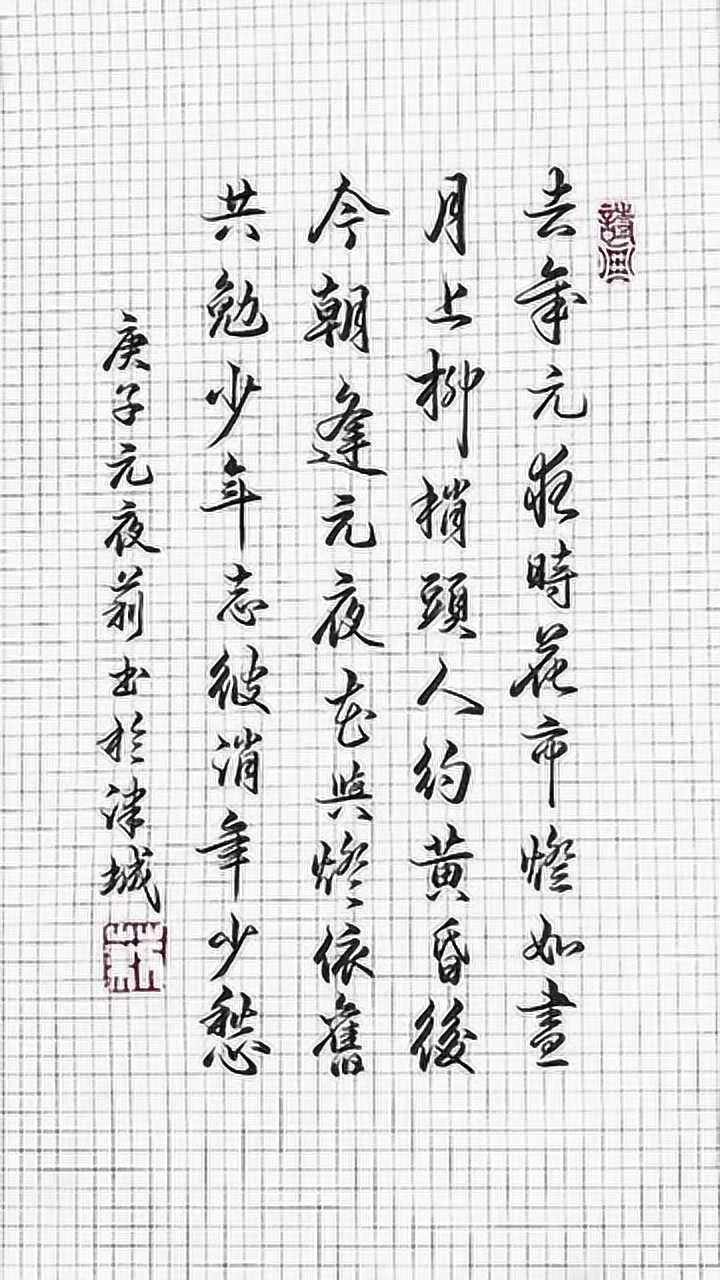 去年元夜時花市燈如晝
月上柳梢頭人約黄昏後
今朝逢元夜花與燈依舊
共勉少年志彼消年少愁
庚子元夜书於津城